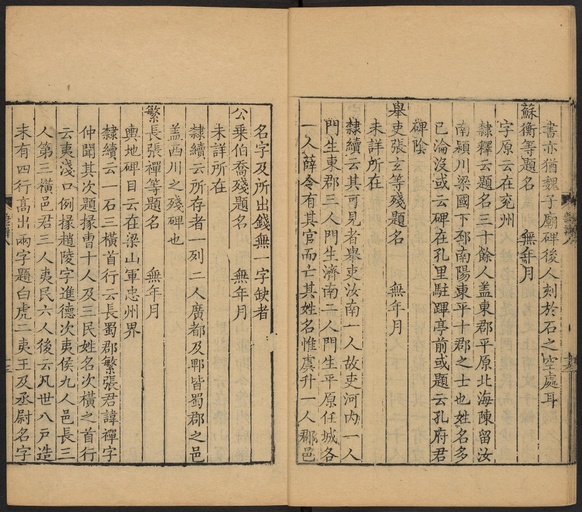 書亦猶魏子廟碑後人刻於石之空處耳
蘇衡等題名　無年月
字原云在兖州
隸釋云題名三十餘人蓋東郡平原北海陳留汝
南潁川梁國下邳南陽東平十郡之士也姓名多
已淪沒或云碑在孔里駐蹕亭前或題云孔府君
碑陰
舉吏張玄等殘題名　無年月
未詳所在
隸續云其可見者舉吏汝南一人故吏河內一人
門生東郡三人門生濟南二人門生平原任城各
一人薛令有其官而亡其姓名惟虞升一人郡邑
名字及所出錢無一字缺者
公乘伯喬殘題名　無年月
未詳所在
隸續云所存者一列二人廣都及郫皆蜀郡之邑
蓋西川之殘碑也
繁長張禪等題名　無年月
輿地碑目云在梁山軍忠州界
隸續云一石三橫首行云長蜀郡繁張君諱禪字
仲聞其次題掾曹十人及三民姓名次橫之首行
云夷淺口例掾趙陵字進德次夷侯九人邑長三
人第三橫邑君三人夷民六人後云凡世八戶造
末有四行高出兩字題白虎二夷王及丞尉名字